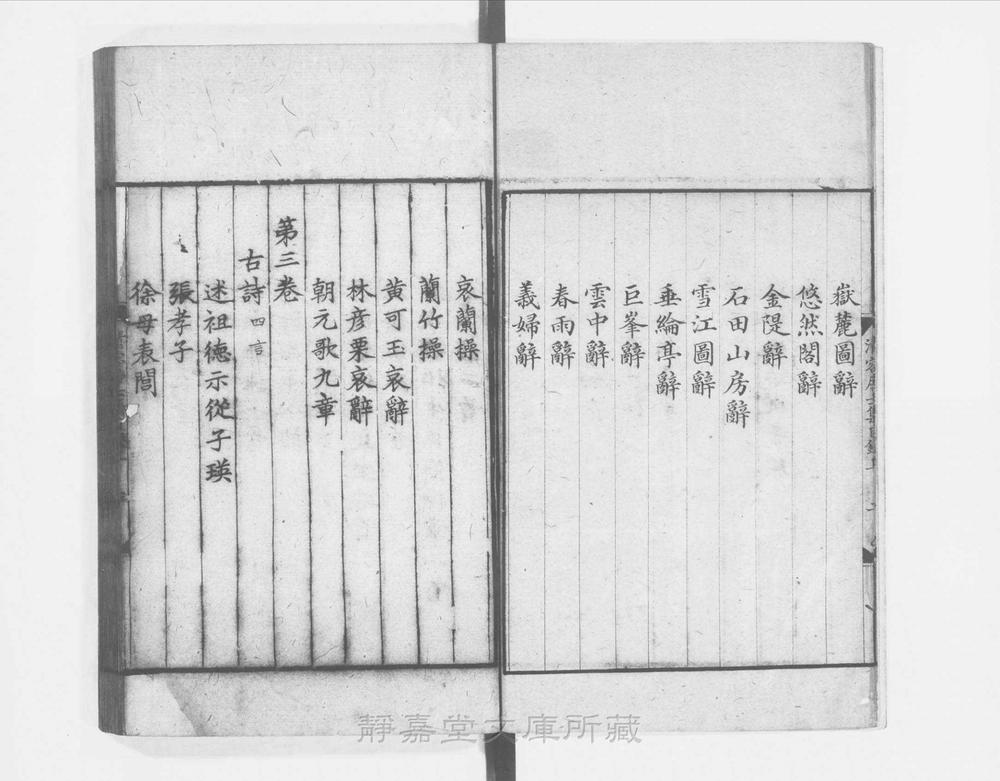 嶽麓圖辭
悠然閣辭
金隄辭
石田山房辭
雪江圖辭
垂綸亭辭
巨峯辭
雲中辭
春雨辭
義婦辭
哀蘭操
蘭竹操
黄可玉哀辭
林彦栗哀辭
朝元歌九章
第三卷
古詩四言
述祖德示從子瑛
張孝子
徐母表閭
靜嘉堂文庫所藏